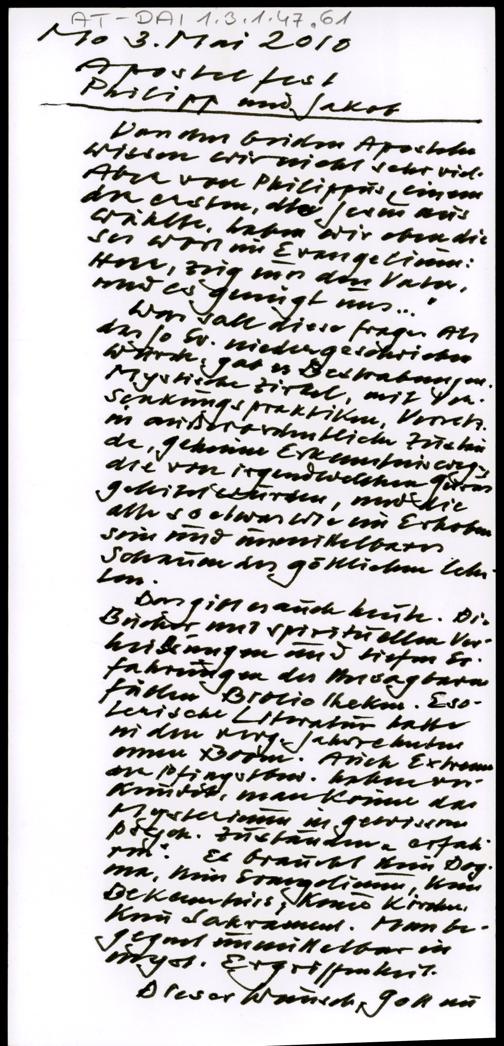 AT-DAI 1.3.1.47.61
Mo 3. Mai 2010
Apostelfest
Philipp und Jakob
Von den beiden Aposteln
wissen wir nicht sehr viel.
Aber von Philippus, einem
der ersten, die Jesus aus
wählte, haben wir eben die
ses Wort im Evangelium:
Herr, zeig uns den Vater,
und es genügt uns..."
Was soll diese Frage. Als
das Jo Ev. niedergeschrieben
wurde, gab es Bestrebungen.
Mystische Zirkel, mit Ver-
senkungspraktiken, Versetz.
in außerordentliche Zustän
de, geheime Erkenntniswege,
die von irgendwelchen Gurus
geleitet wurden, und die
alle so etwas wie ein Erhoben
sein und unmittelbares
Schauen des göttlichen
Das gilt auch heute. Die
Bücher mit spirituellen Ver-
heißungen und tiefen Er-
fahrungen des Unsagbaren
füllen Bibliotheken. Eso-
terische Literatur hatte
in den verg. Jahrzehnten
einen Boom. Auch Extreme
an Pfingstbew. haben ver-
kündet, man könne das
Mysterium in gewissen
psych. Zuständen "erfah-
ren". Es braucht kein Dog-
ma, kein Evangelium, kein
Bekenntnis, keine Kirche,
kein Sakrament. Man be-
gegnet unmittelbar in
myst. Ergriffenheit.
Dieser Wunsch, Gott